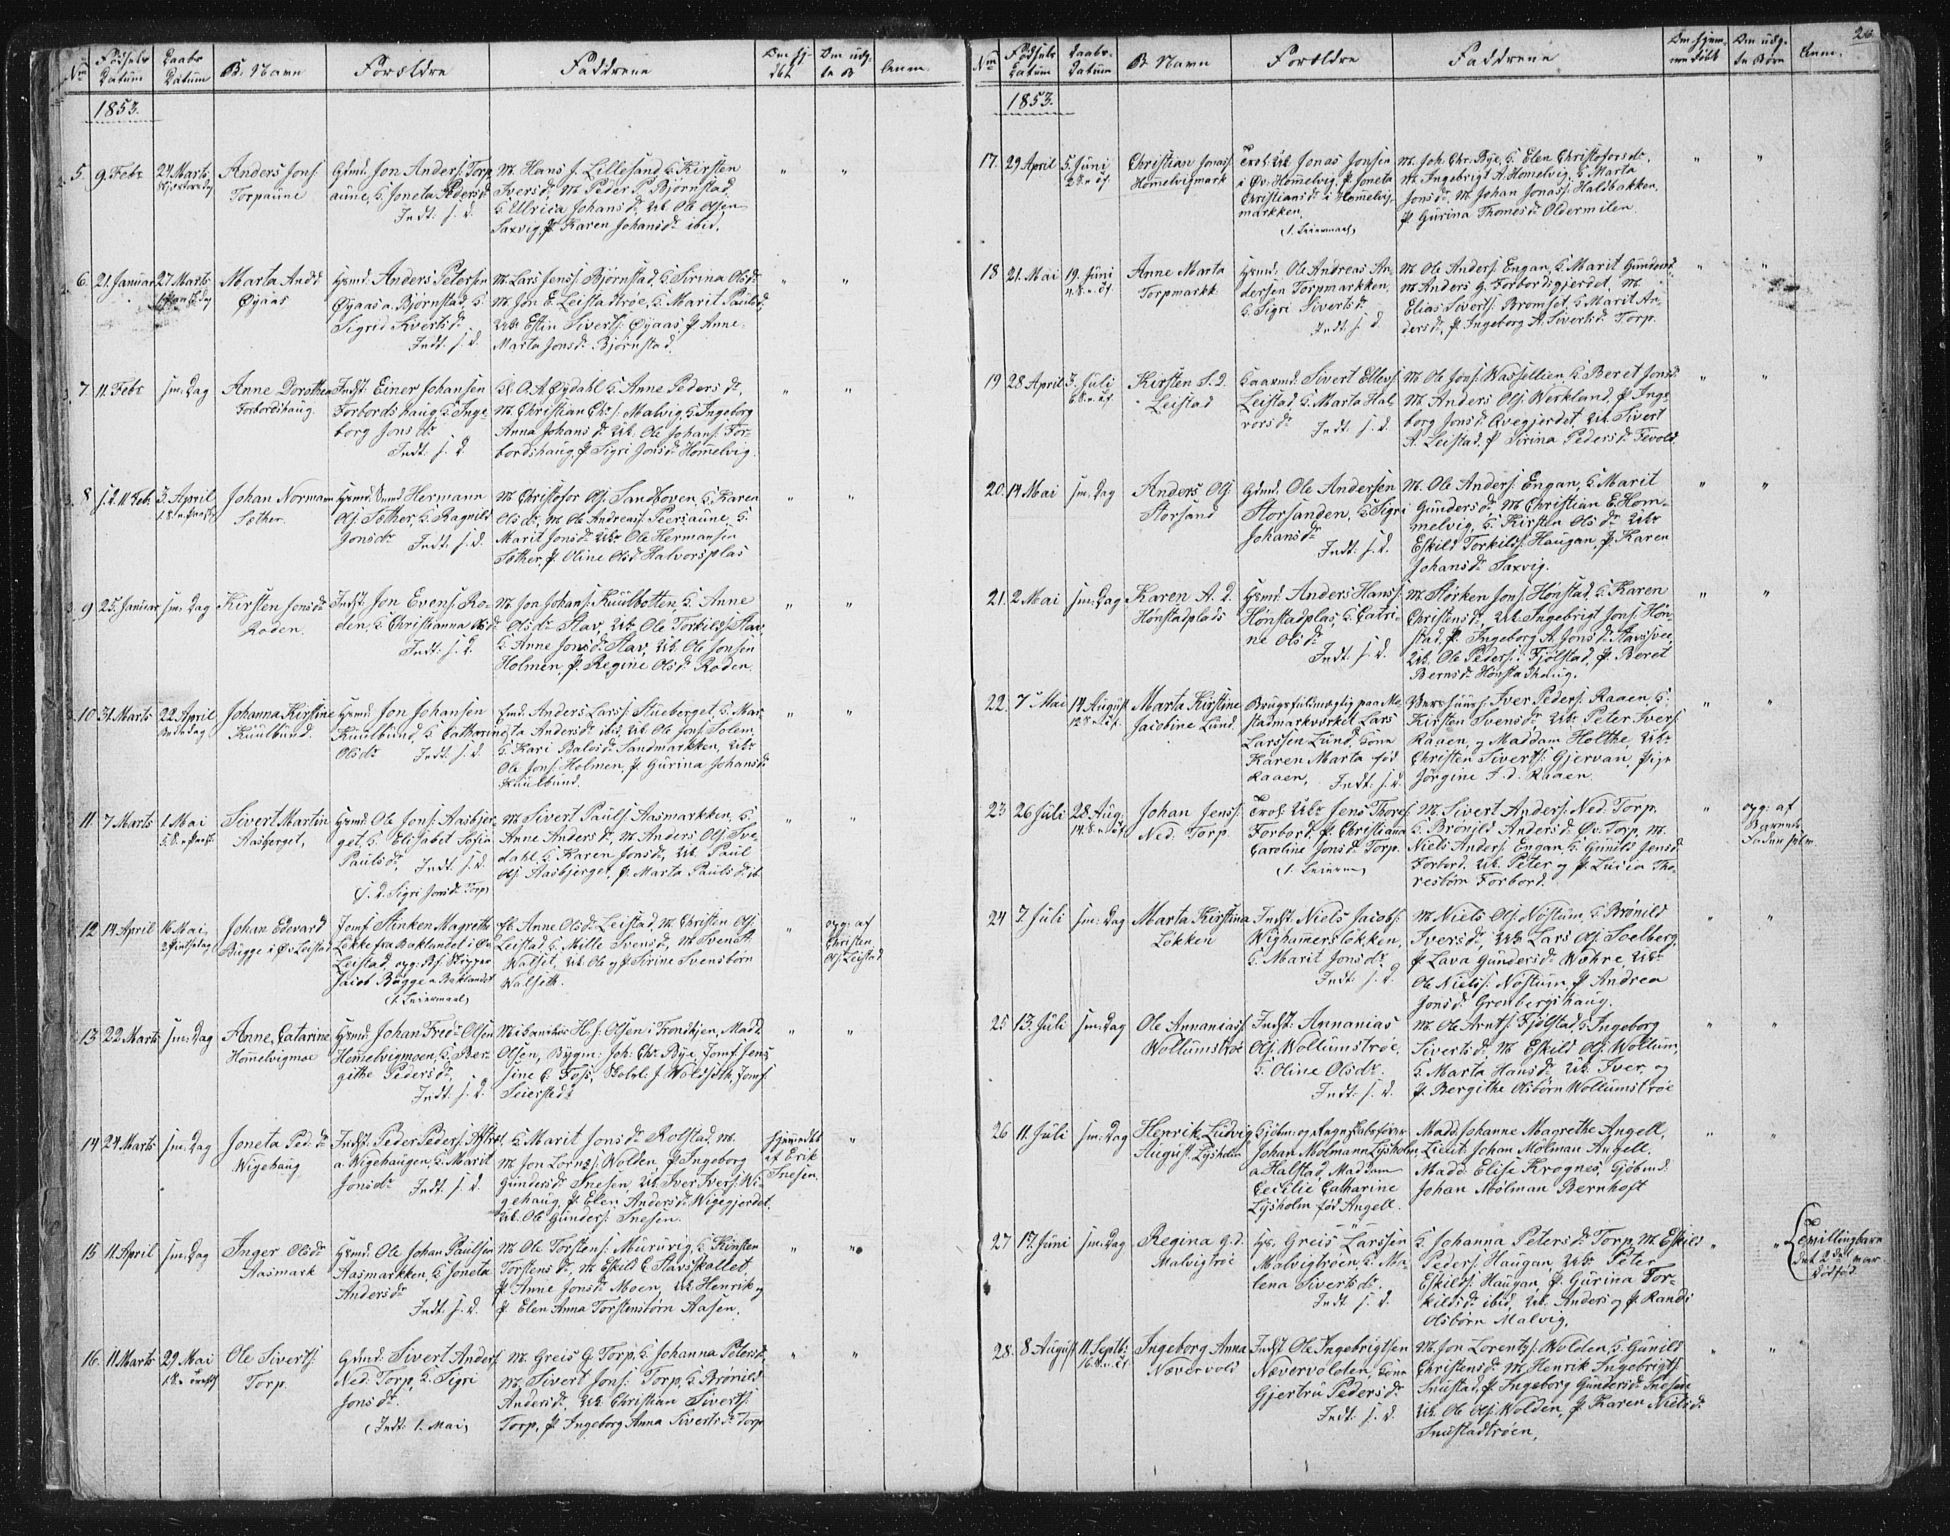 Nr
Fødsels Datum
Daabs Datum
B. Navn
Forældre
Faddrene
Anm.
1853.
5. 9. Febr 24 Marts
Anders Jons.
Torpaune
Gdmd. Jon Anders. Torp
aune, H. Joneta Pedersd
Indt. s. d.
M. Hans J. Lillesand, H. Kirsten
Iversd, M. Peder P. Bjørnstad,
H. Ulrica Johansd, Uk. Ole Olsen
Saxvig, P. Karen Johansd. ibid.
6. 21. Januar 27 Marts
Marta Andd
Øyaas
Hsmd. Anders Petersen
Øyaas a. Bjørnstad, H.
Sigrid Sivertsd.
Indt. s. d.
M. Lars Jens. Bjørnstad, H. Sirina Olsd.
M. Jon E. Leistadtrøe, H. Marit Paulsd,
Uk. Estin Siverts. Øyaas, P. Anne
Marta Jonsd. Bjørnstad.
7. 11. Febr sm. Dag
Anne Dorothea
Forbordshaug
Indst. Einer Johansen
Forbordshaug, H. Inge-
borg Jonsd.
Indt. s. d.
M. Christian Chr. Malvig, H. Ingeborg
Anna Johansd. Uk. Ole Johans. For-
bordshaug, P. Sigri Jonsd. Hommelvig.
8. 11 Febr 3. April
Johan Normann
Sæther.
Hermann
Ols. Sæther, H. Ragnild
Jonsd.
Indt. s. d.
M. Christofor Ols. Sandhoven, H. Karen
Olsd, M. Ole Andreas. Peersaune, H.
Marit Jonsd. Uk. Ole Hermansen
Sæther, P. Oline Olsd. Halvorsplas
9 25. Januar sm. Dag
Kirsten Jonsd.
Roden.
Indst. Jon Evens. Ro-
den, H. Christianna Olsd.
Indt. s. d.
M. Jon Johans. Kuulbotten, H. Anne
Olsd. Stav, Uk. Ole Torkilds. Stav,
H. Anne Jonsd. Stav, Uk. Ole Jonsen
Holmen, P. Regine Olsd. Roden.
10 31. Marts 22 April
Johanna Kirstine
Kuulbund.
Hsmd. Jon Johansen
Kuulbund, H. Catharine
Olsd. Indt. s. d.
Anders Lars. Stueberget, H. Mar-
ta Andersd. ibid, Uk. Ole Jons. Solem,
H. Kari Balosd. Sandmarkken, Uk.
Ole Jons. Holmen, P. Gurina Johansd.
Kuulbund.
11. 7 Marts 1. Mai
Sivert Martin
Aasberget,
Hsmd. Ole Jons. Aasbjer-
get, H. Elisabet Sofia
Paulsd. Indt. s. d.
(s. d. Sigri Jonsd. Torp)
M. Sivert Pauls. Aasmarkken, H.
Anne Andersd, M. Anders Ols. Sve-
dahl, H. Karen Jonsd, Uk. Paul
Ols. Aasbjerget, P. Marta Paulsd. ib.
12 14 April 16 Mai,
Johan Edevard
Bügge i Øv. Leistad
Jomf. Stinken Magrethe
Løkke fra Baklandet i Øv.
Leistad,
Jacob Bügge a Baklandet
(1. Leiermaal)
H. Anne Olsd. Leistad, M. Christen Ols.
Leistad, H. Mille Svensd, M. Svend
Walset, Uk. Ole og P. Sirine Svensbørn
Walseth.
opg: af
Christen
Ols. Leistad
13 22 Marts sm. Dag
Anne, Catarine
Hommelvigmoe
Hsmd. Johan Fred. Olsen
Hommelvigmoen, H. Ber-
githe Pedersd.
Indt. s. d.
H. J. Olsen i Trondhjem, Madd.
Olsen, Bygm: Joh: Chr. Bye, Jomf. Jen-
sine C. Foss, J. Woldseth, Jomf.
Seierstedt
14 24 Marts sm. Dag
Joneta Ped. d.
Wigehaug
Indst. Peder Peders.
a. Wigehaugen, H. Marit
Jonsd. Indt. s. d.
H. Marit Jonsd. Rolstad, M.
M. Jon Lorns. Wolden, P. Ingeborg
Gundersd. Snesen, Uk. Iver Ivers. Wi-
gehaug, P. Elen Andersd. Wigegjerdet.
Uk. Ole Gunders. Snesen.
hjemedbt
af Erik
Snesen.
15 11 April sm. Dag
Inger Olsd.
Aasmark
Hsmd. Ole Johan Paulsen
Aasmarkken, H. Joneta
Andersd.
Indt. s. d.
M. Ole Torstens. Muruvig, H. Kirsten
Torstensd, M. Eskild E. Stavskallet,
P. Anne Jonsd. Moen, Uk. Henrik og
P. Elen Anna Torstensbørn Aasen.
16. 11 Marts 29 Mai
Ole Siverts.
Torp.
Gdmd. Sivert Anders.
Ned. Torp, H. Sigri
Jonsd.
(Indt. 1. Mai)
M. Greis G. Torp, H. Johanna Petersd.
M. Sivert Jons. Torp, H. Brønild
Andersd, Uk. Christian Siverts.
Torp, P. Ingeborg Anna Sivertsd. Torp
Nr
Fødsels Datum
Daabs Datum
B. Navn
Forældre
Faddrene
Anm.
1853.
17. 29 April 5. Juni
Christian Jonas.
Hommelvigmark
Uk. Jonas Jonsen
i Øv. Hommelvig, P. Joneta
Christiansd. i Hommelvig-
markken.
(1. Leiermaal)
M. Joh. Chr. Bye, H. Elen Christoforsd.,
M. Ingebrigt A. Homelvig, H. Marta
Jonsd. M. Johan Jonas. Haldbakken,
P. Gurina Thomesd. Oldermelen.
18 21. Mai 19. Juni
Anne Marta
Torpmarkk.
Hsmd. Ole Andreas An-
dersen Torpmarkken,
H. Sigri Sivertsd.
Indt. s. d.
M. Ole Anders. Engan, H. Marit Gundersd.
M. Anders G. Forbordsgjerdet, M.
Elias Siverts. Bromset, H. Marit An-
dersd, P. Ingeborg A. Sivertsd. Torp.
19 28 April 3. Juli
Kirsten S. d.
Leistad
Gaarmd. Sivert Ellevs.
Leistad, H. Marta Hal-
vorsd.
Indt. s. d.
M. Ole Jons. Wassellien, H. Beret Jonsd.
M. Anders Ols. Werkland, P. Inge-
borg Jonsd. Qvegjerdet, Uk. Sivert
A. Leistad, P. Sirina Pedersd. Fevold.
20. 14 Mai sm. Dag
Anders Ols.
Storsand
Gdmd. Ole Andersen
Storsanden, H. Sigri
Johansd.
Indt. s. d.
M. Ole Anders. Engan, H. Marit
Gundersd, M. Christian E. Hom-
melvig, H. Kirsten Olsd. Uk.
Eskild Torkilds. Haugan, P. Karen
Johansd. Saxvig.
21. 2 Mai sm. Dag
Karen A. d.
Hønstadplads
Hsmd. Anders Hans.
Hønstadplas, H. Catri-
ne Olsd.
Indt. s. d.
M. Størken Jons. Hønstad, H. Karen
Christensd., Uk. Ingebrigt Jons. Høn-
stad, P. Ingeborg A. Jonsd. Stavsvee,
Uk. Ole Peders. i Fjølstad, P. Beret
Berntsd. Hønstadhaug.
22. 7 Mai 14 August
Marta Kirstine
Jacobine Lund.
Brugsfuldmægtig paa Mo-
stadmarkværket Lars
Larssen Lund, Kone
Karen Marta fød
Raaen, Indt. s. d.
Iver Peders. Raaen, H.
Kirsten Svensd. Uk. Peter Ivers.
Raaen, og Maddam Holthe, Uk.
Christen Siverts. Gjervan, Pige
Jørgine I. d. Raaen.
23 26 Juli 28 Aug.
Johan Jens.
Ned. Torp.
Uk. Jens Thores.
Forbord, P. Christiana
Caroline Jonsd. Torp.
(1. Leierm)
M. Sivert Anders. Ned. Torp,
H. Brønild Andersd. Øv. Torp, M.
Niels Anders. Engan, H. Gunild Jensd.
Forbord, Uk. Peter og P. Lucia Tho-
resbørn Forbord.
opg: af
Barnets
Fader selv
24 7. Juli sm. Dag
Marta Kirstina
Løkken
Indst. Niels Jacobs.
Wighammersløkken,
H. Marit Jonsd.
Indt. s. d.
M. Niels Ols. Nøstum, H. Brønild
Iversd, Uk. Lars Ols. Soelberg,
P. Lava Gundersd. Wøhre, Uk.
Ole Niels. Nøstum, P. Andrea
Jonsd. Grønbergshaug.
25 13. Juli sm. Dag
Ole Annanias.
Wollumstrøe
Indst. Annanias
Ols. Wollumstrøe,
H. Oline Olsd.
Indt. s. d.
M. Ole Arnts. Fjølstad, H. Ingeborg
Sivertsd, M. Eskild Ols. Wollum,
H. Marta Hansd. Uk. Iver, og
P. Bergithe Olsbørn Wollumstrøe
26 11. Juli sm. Dag
Henrik Ludvig
August Lysholm
Kjøbm. og Regnskabsfører
Johan Molmann Lysholm
a Halstad, Maddam
Cecilie Catharine
Lysholm fød Angell.
Madd. Johanne Magrethe Angell,
Lieut. Johan Mølman Angell,
Madd. Elise Krognes, Kjøbmd.
Johan Mølman Bernhoft
27 17. Juni sm. Dag
Regina G. d.
Malvigtrøe
Hs. Greis Larssen
Malvigtrøen, H. Ma-
lena Sivertsd.
Indt. s. d.
H. Johanna Petersd. Torp, M. Eskild
Peders. Haugan, Uk. Peter
Eskilds. Haugan, P. Gurina Tor-
kildsd. ibid, Uk. Anders og P. Randi
Olsbørn Malvig.
Tvillingbarn
det 2det var
dødfød.
28. 8. August 11. Septb.
Ingeborg Anna
Nævervold
Indst. Ole Ingebrigtsen
Nævervolden, Kone
Gjertru Pedersd.
Indt. s. d.
M. Jon Lorents. Wolden, H. Gunild
Christensd. M. Henrik Ingebrigts.
Snustad, P. Ingeborg Gundersd. Snesen
Uk. Ole Ols. Wolden, P. Karen Nielsd.
Snustadtrøen.